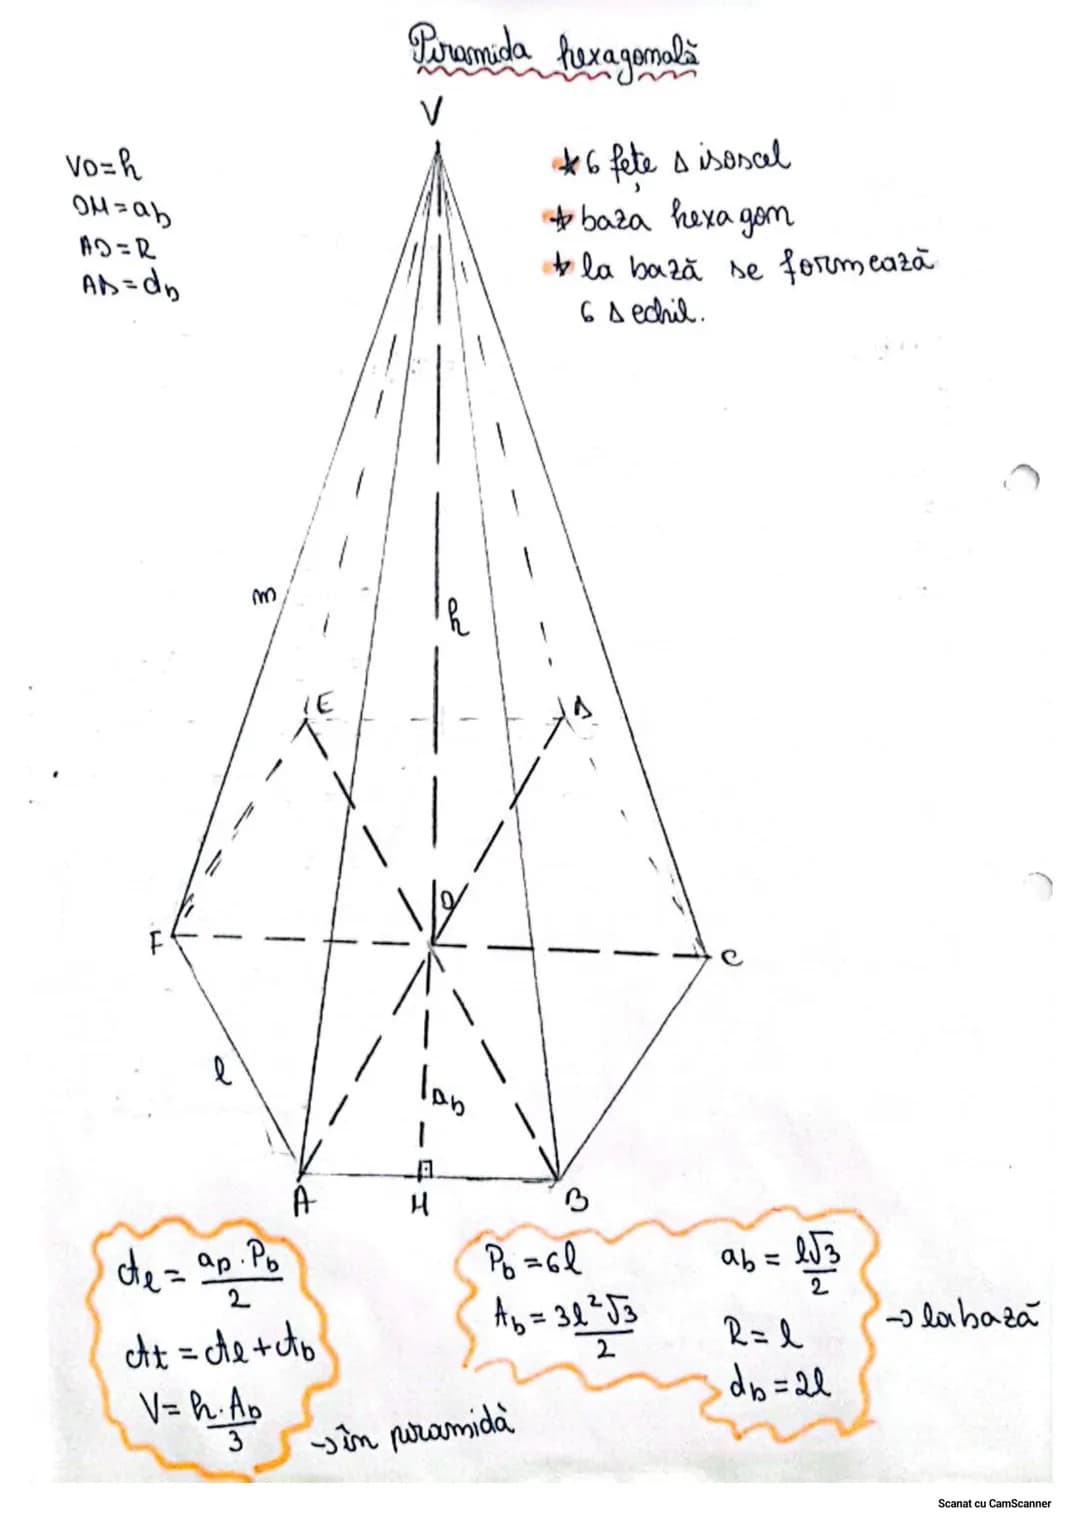 Piramida hexagonală
V
VO=h
OM=ab
AO=R
AD=db
* 6 fețe Δ isoscel
* baza hexagon
* la bază se formează
6 Δ echil.
m
h
E
D
O
F
C
l
ab
A
M
B
Al = ap·Pb / 2
At = Al + Ab
V = h·Ab / 3
→ în piramidă
Pb = 6l
Ab = 3l²√3 / 2
ab = l√3 / 2
R = l
db = 2l
→ la bază
Scanat cu CamScanner